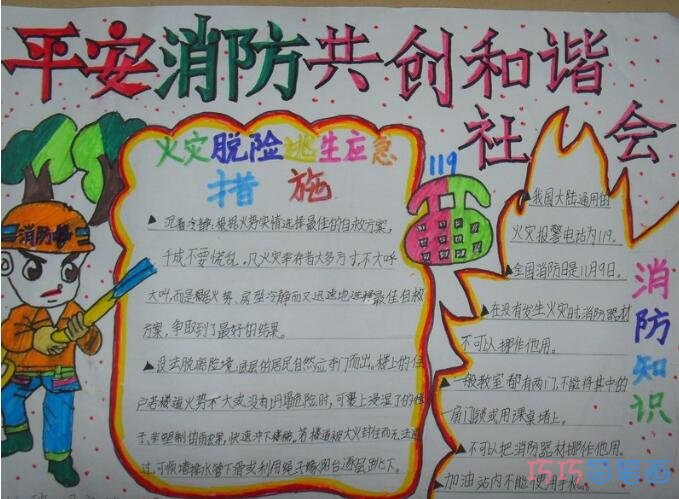 平安消防共创和谐
社会
火灾脱险逃生应急
措施
119
消防
▲沉着冷静，根据火势实情选择最佳的自救方案，
千成不要慌乱，
大叫，而是根据火势、房型冷静而又迅速地选择最佳自救
方案，争取到了最好的结果。
▲设法脱离险境，底层的居民自然应夺门而出。楼上的住
户若楼道火势不大或没有坍塌危险时，可裹上浸湿了的
快速冲下楼梯。若楼道被大火封住而无法通
过，可顺墙排水管下滑或利用绳子缘阳台逐层跳下。
▲我国大陆通用的
火灾报警电话为119。
▲全国消防日是11月9日。
▲在没有发生火灾时，消防器材
不可以挪作他用。
▲一般教室都有两门，不能将其中的
一扇门锁或用课桌堵上。
▲不可以把消防器材挪作他用。
▲加油站内不能使用手机。
消防知识
巧巧简笔画